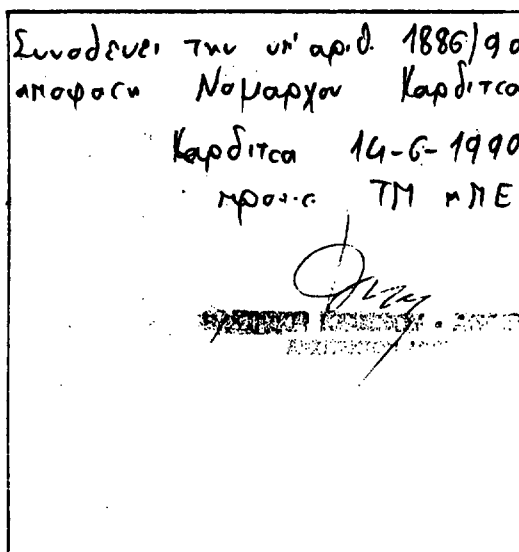 Συνοδευει την υπ' αριθ. 1886/90
αποφαση Νομαρχου Καρδιτσα
Καρδιτσα 14-6-1990
ΤΜ ΠΕ